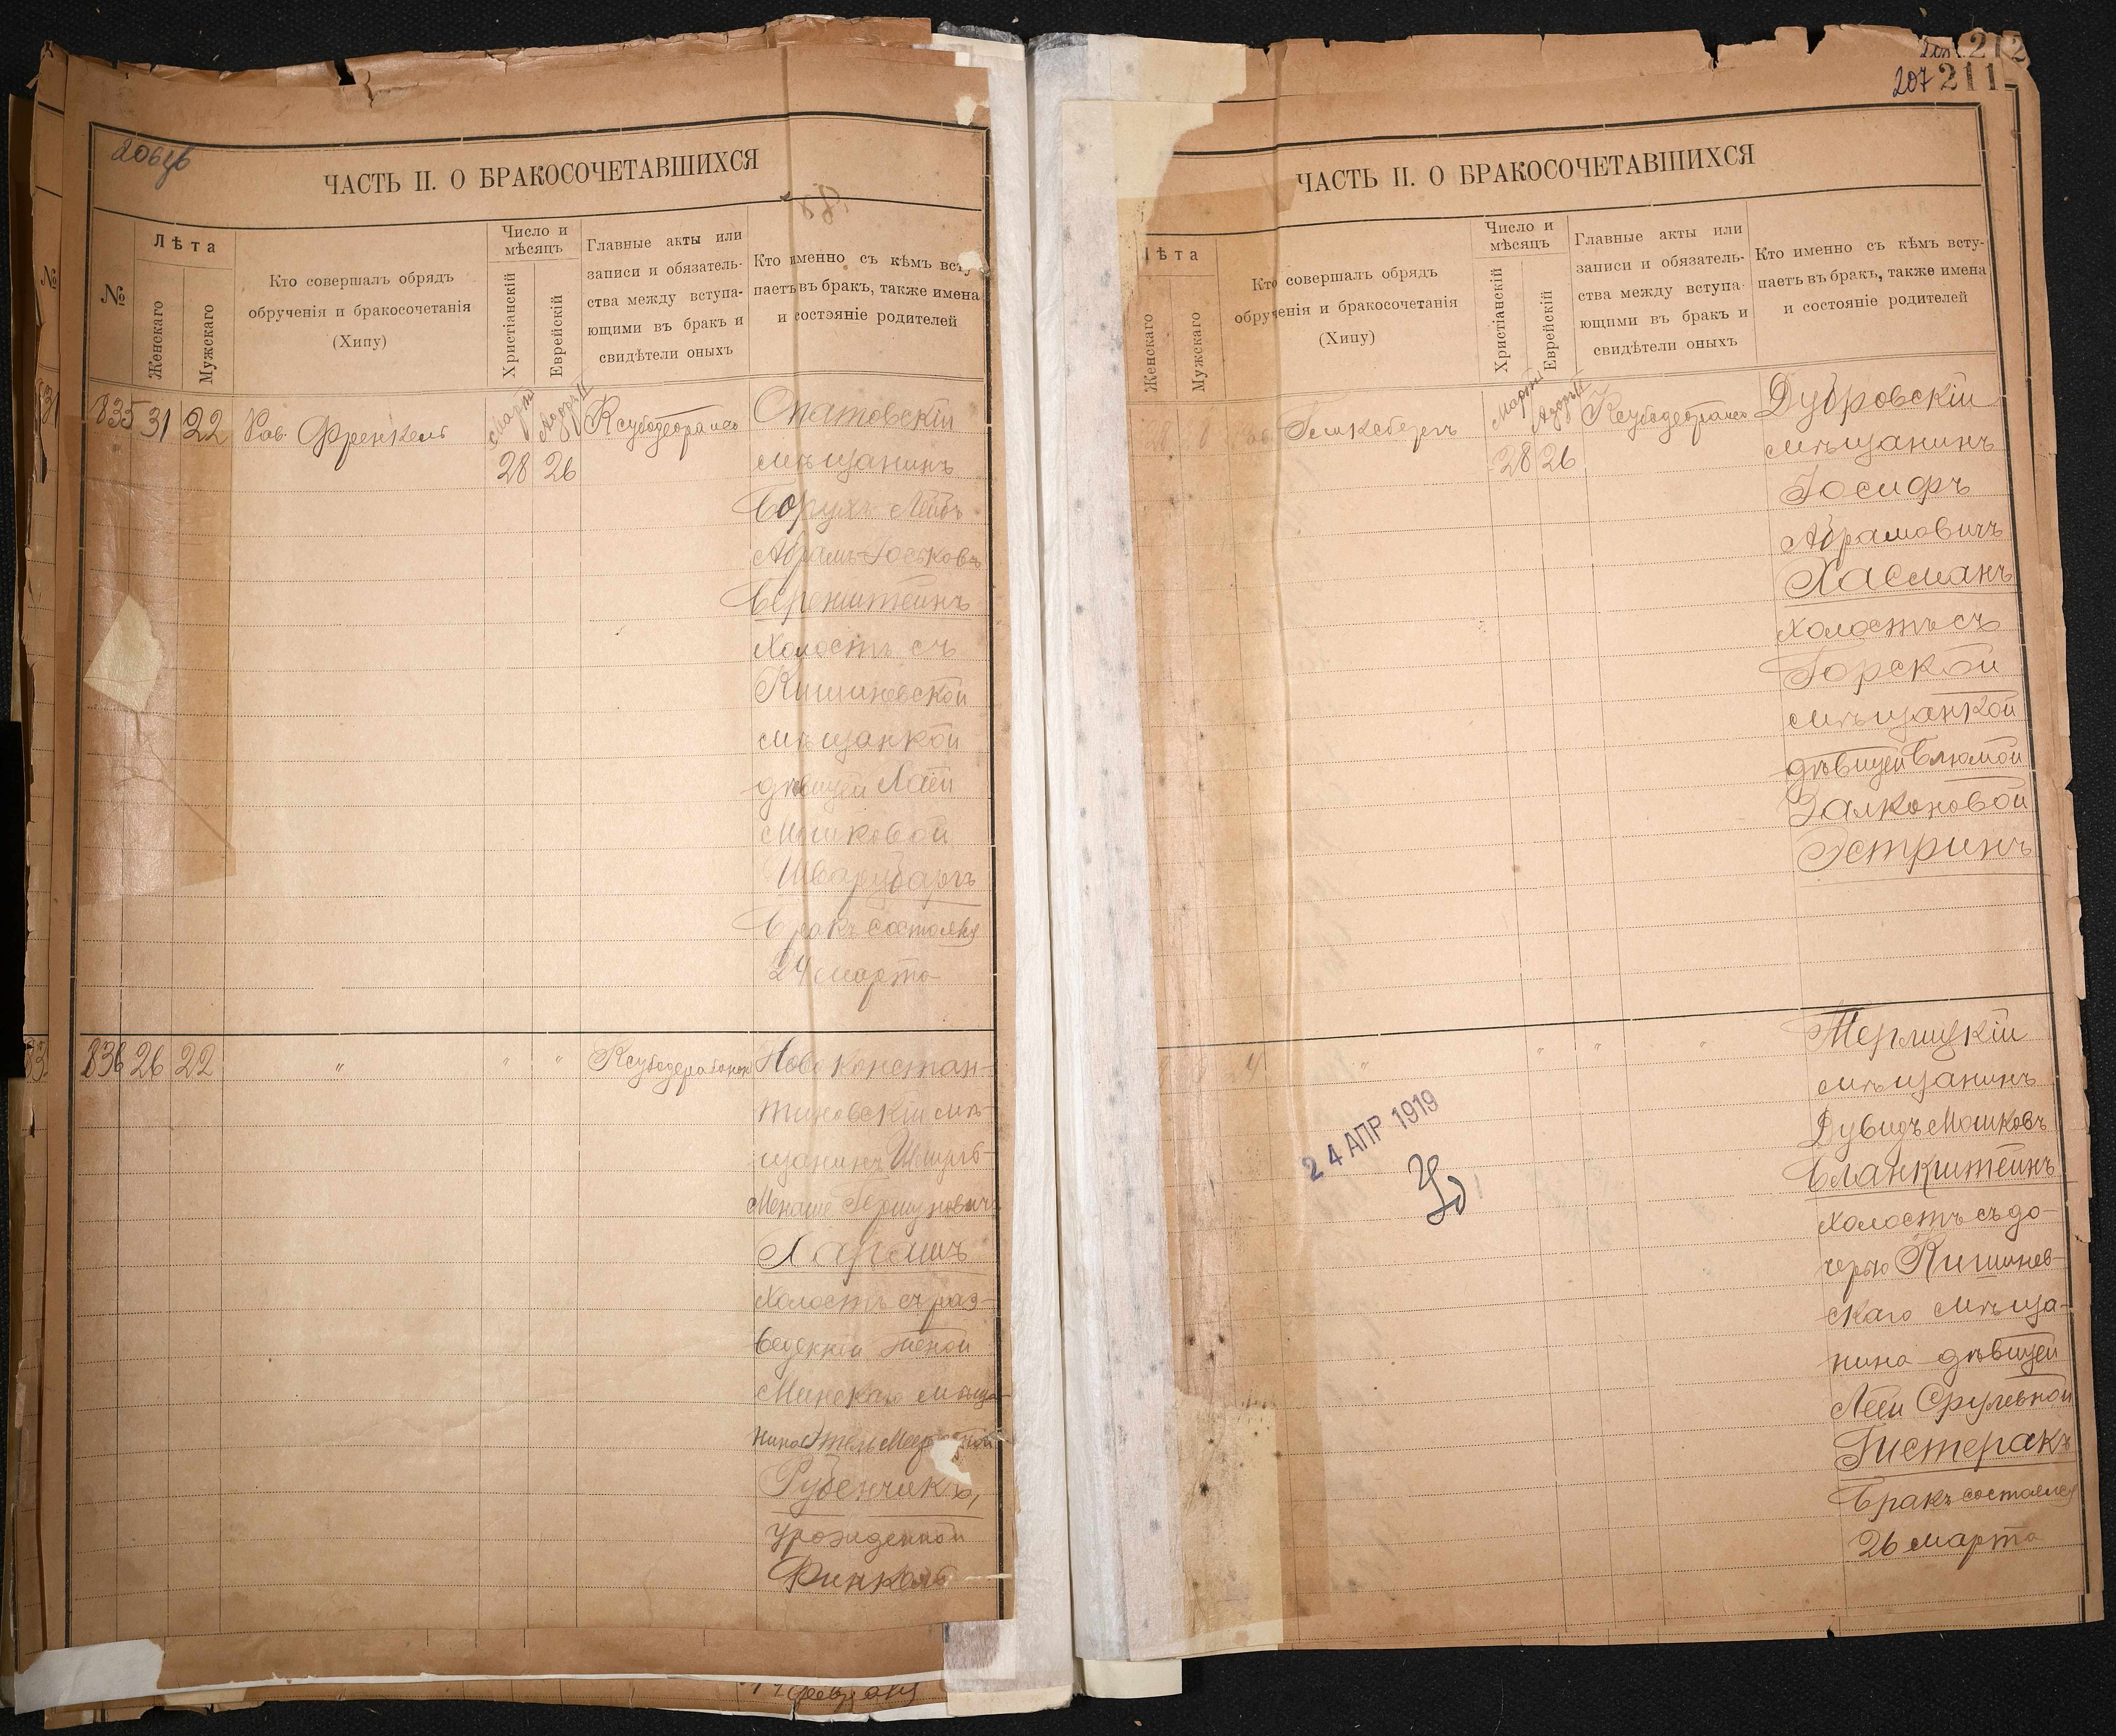 206об
ЧАСТЬ II. О БРАКОСОЧЕТАВШИХСЯ
№
Лѣта
Женскаго
Мужскаго
Кто совершалъ обрядъ
обрученія и бракосочетанія
(Хипу)
Число и
мѣсяцъ
Христіанскій
Еврейскій
Главные акты или
записи и обязатель-
ства между вступа-
ющими въ бракъ и
свидѣтели оныхъ
Кто именно съ кѣмъ всту-
паетъ въ бракъ, также имена
и состояніе родителей
835
31
22
Рав. Френкель
Марта
28
26
Опатовскій
мѣщанинъ
Борухъ Лейбъ
Абрамъ-Іоськовъ
Беренштейнъ
холостъ съ
Кишиневской
мѣщанкой
дѣвицей Хаей
Мошковой
Шварцбергъ
Бракъ состоялся
24 марта
836
26
22
"
"
"
Ново Констан-
тиновскій мѣ-
щанинъ
Менаше Гершуновичъ
Харашъ
холостъ съ раз-
веденной женой
Минскаго мѣща-
нина
Рубенчикъ,
урожденной
Финкель
212
207 211
ЧАСТЬ II. О БРАКОСОЧЕТАВШИХСЯ
Лѣта
Женскаго
Мужскаго
Кто совершалъ обрядъ
обрученія и бракосочетанія
(Хипу)
Число и
мѣсяцъ
Христіанскій
Еврейскій
Главные акты или
записи и обязатель-
ства между вступа-
ющими въ бракъ и
свидѣтели оныхъ
Кто именно съ кѣмъ всту-
паетъ въ бракъ, также имена
и состояніе родителей
Марта
28
26
Дубровскій
мѣщанинъ
Іосифъ
Абрамовичъ
Хасманъ
холостъ съ
Горской
мѣщанкой
дѣвицей Блюмой
Залконовой
Эстринъ
"
"
"
"
24 АПР 1919
мѣщанинъ
Дувидъ Мошковъ
Бланкштейнъ
холостъ съ до-
черью Кишинев-
скаго мѣща-
нина дѣвицей
Леей Срулевной
Гистеракъ
Бракъ состоялся
26 марта